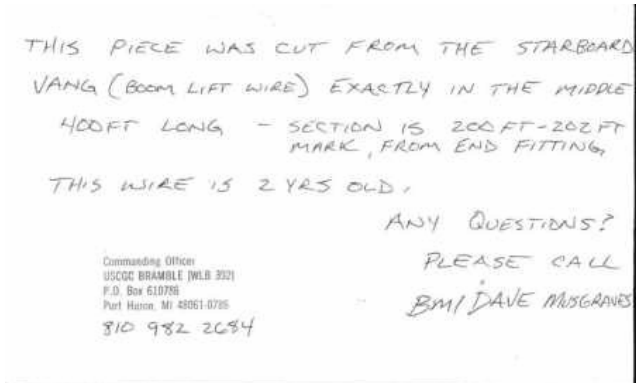 THIS PIECE WAS CUT FROM THE STARBOARD
VANG (BOOM LIFT WIRE) EXACTLY IN THE MIDDLE
400FT LONG - SECTION IS 200FT-202FT
MARK, FROM END FITTING,
THIS WIRE IS 2 YRS OLD.
ANY QUESTIONS?
PLEASE CALL
BM1 DAVE MUSGRAVES
Commanding Officer
USCGC BRAMBLE (WLB 392)
P.O. Box 610786
Port Huron, MI 48061-0786
810 982 2684